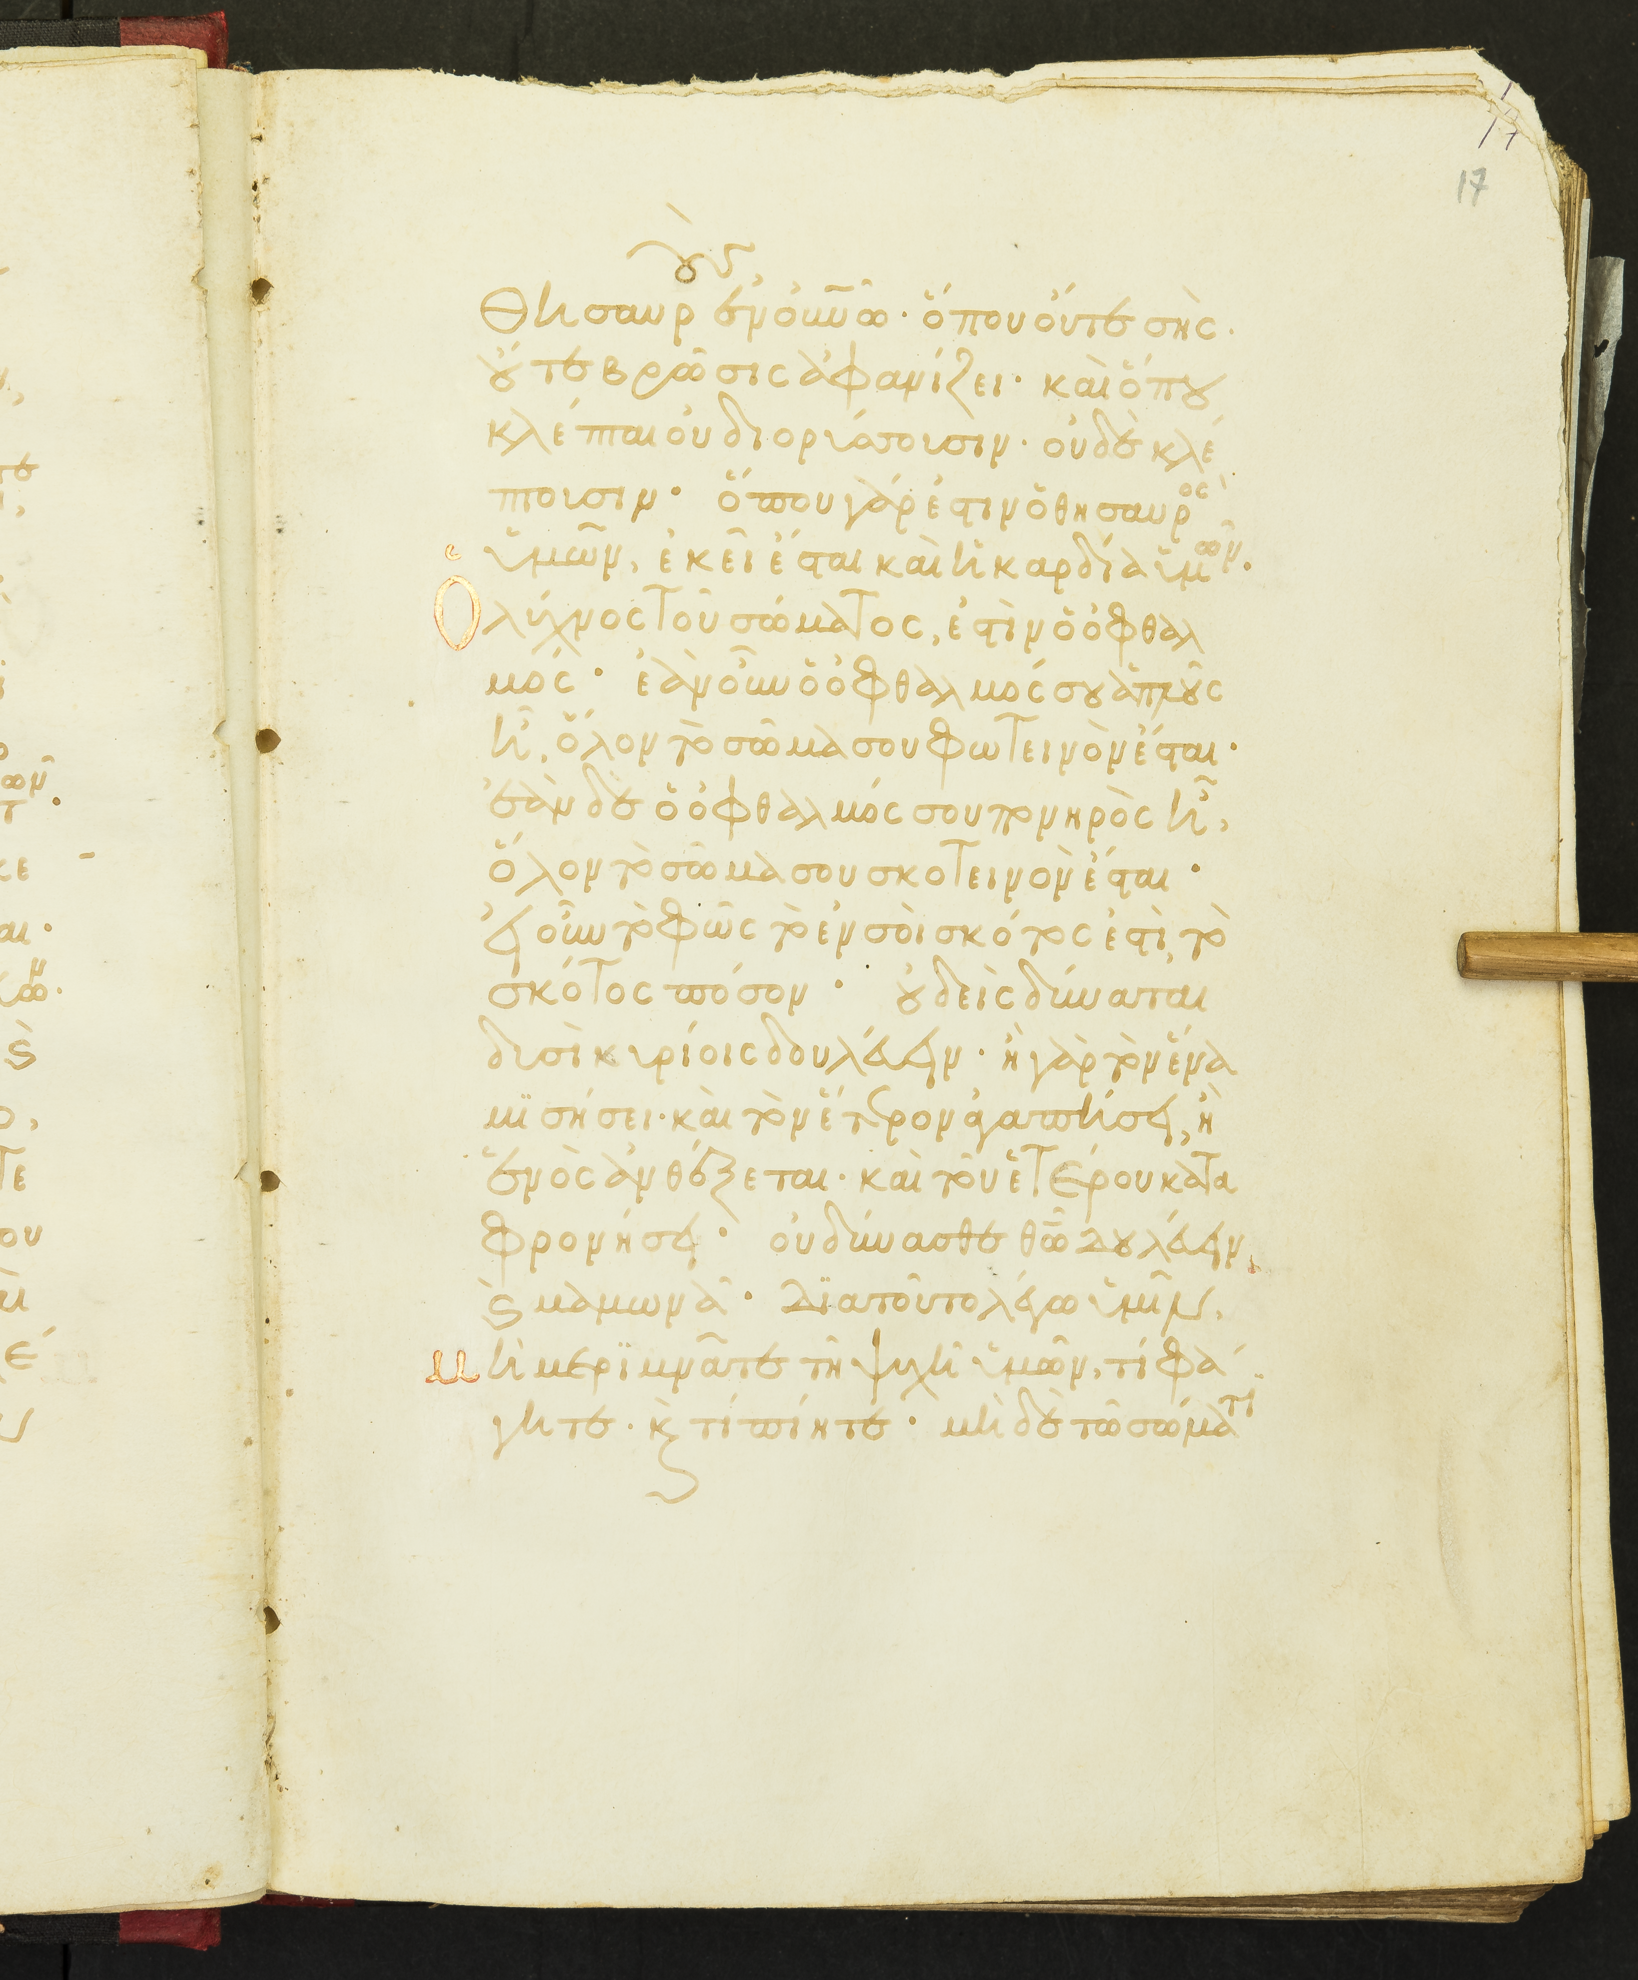 17
17
οὺς
θησαυρ ἐν οὐνῶ· ὅπου οὔτε σὴς·
οὔτε βρῶσις ἀφανίζει· καὶ ὅπου
κλέπται οὐ διορύσσουσιν· οὐδὲ κλέ
πτουσιν· ὅπου γάρ ἐστιν ὁ θησαυρὸς
ὑμῶν, ἐκεῖ ἔσται καὶ ἡ καρδία ὑμῶν.
Ὁ λύχνος τοῦ σώματος, ἐστὶν ὁ ὀφθαλ
μός· ἐὰν οὖν ὁ ὀφθαλμός σου ἁπλοῦς
ἦ, ὅλον τὸ σῶμα σου φωτεινὸν ἔσται·
ἐὰν δὲ ὁ ὀφθαλμός σου πονηρὸς ἦ,
ὅλον τὸ σῶμα σου σκοτεινὸν ἔσται·
εἰ οὖν τὸ φῶς τὸ ἐν σοὶ σκότος ἐστὶ, τὸ
σκότος πόσον· οὐδεὶς δύναται
δυσὶ κυρίοις δουλεύειν· ἢ γὰρ τὸν ἕνα
μισήσει· καὶ τὸν ἕτερον ἀγαπήσει, ἢ
ἑνὸς ἀνθέξεται· καὶ τοῦ ἑτέρου κατα
φρονήσει· οὐ δύνασθε θῶ δουλεύειν,
καὶ μαμωνᾶ· Διατοῦτο λέγω ὑμῖν,
μὴ μεριμνᾶτε τῆ ψυχῆ ὑμῶν, τί φά
γητε· καὶ τί πίητε· μὴ δὲ τῶ σώματι